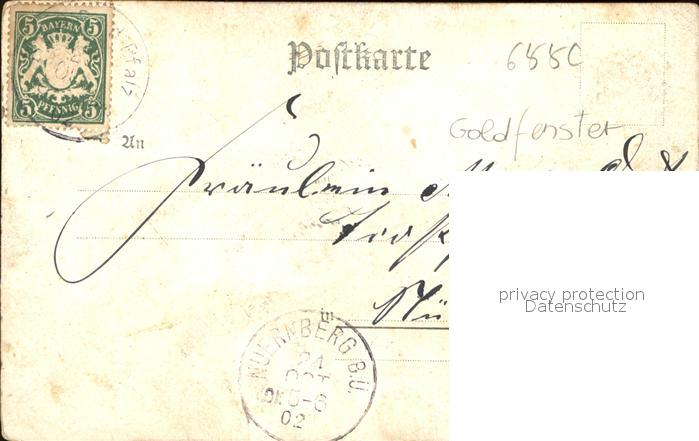 5 BAYERN 5
5 PFENNIG 5
Pfalz
Postkarte
655C
Goldfenster
An
Fräulein
in
Nü
privacy protection
Datenschutz
NUERNBERG B.U.
24
OCT
5-6
02